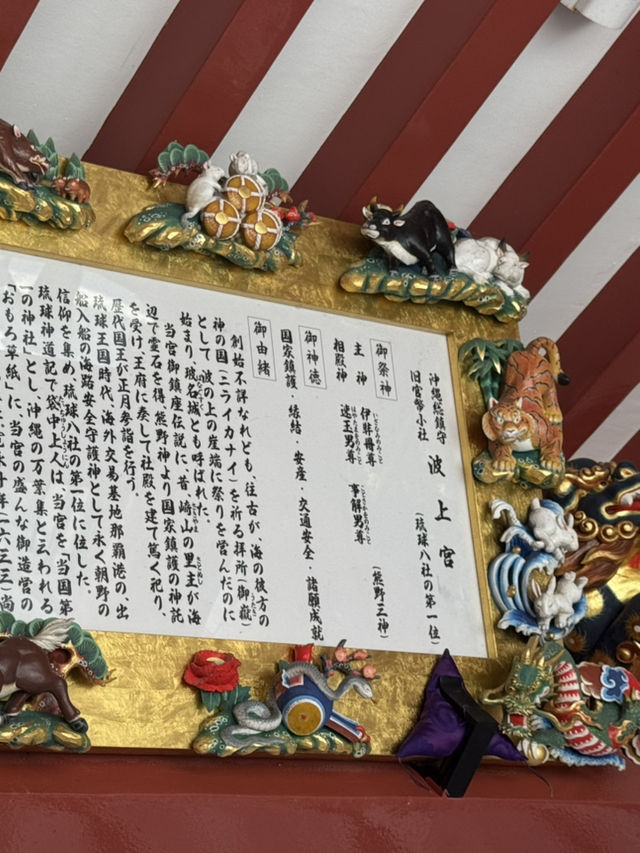 沖縄総鎮守
旧官幣小社
波上宮
(琉球八社の第一位)
御祭神
主神
伊弉冊尊
速玉男尊
事解男尊
(熊野三神)
相殿神
御神徳
国家鎮護・結・安産・交通安全・諸願成就
御由緒
創始不詳なれども、往古が、海の彼方の
神の国(ニライカナイ)を祈る拝所(御嶽)
として、波の上の崖端に祭りを営んだのに
始まり、玻名城とも呼ばれた。
当宮御鎮座伝説に、昔、﨑山の里主が海
辺で霊石を得、熊野神より国家鎮護の神託
を受け、王府に奏して社殿を建て篤く祀り、
歴代国王が正月参詣を行う。
琉球王国時代、海外交易基地那覇港の、出
船入船の海路安全守護神として永く朝野の
信仰を集め、琉球八社の第一位に位した。
琉球神道記で袋中上人は、当宮を「当国第
一の神社」とし、沖縄の万葉集と云われる
「おもろ草紙」に、当宮の盛んな御造営の